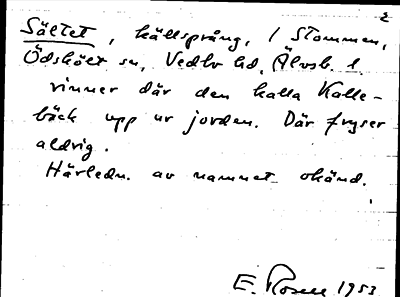 2
Sältet, källsprång, i Stommen,
Ödskölt sn, Vedbo hd, Älvsb. l.
rinner där den kalla Kalle-
bäck upp ur jorden. Där fryser
aldrig.
Härledn. av namnet okänd.
E. Rosell 1953